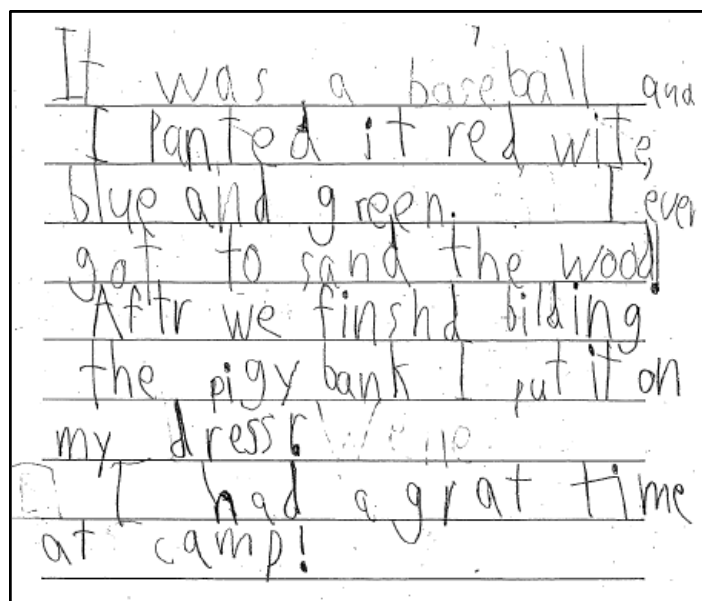 It was a baseball and
I Panted it red, wite,
blue and green. I even
got to sand the wood!
Aftr we finshd bilding
the pigy bank I put it on
my dressr
I had a grat time
at camp!